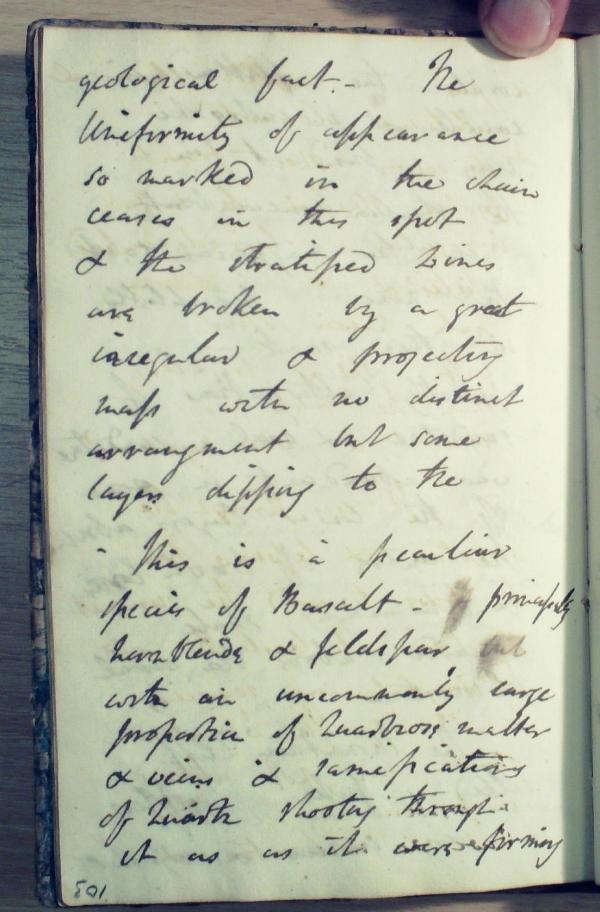 geological fact. - The
Uniformity of appearance
so marked in the chain
ceases in this spot
& the stratified Lines
are broken by a great
irregular & projecting
mass with no distinct
arrangment but some
layers dipping to the
- This is a peculiar
species of Basalt - principally
hornblende & feldspar,
with an uncommonly large
proportion of Quartzose matter
& veins & ramifications
of Quartz shooting through
it as as it were forming
103